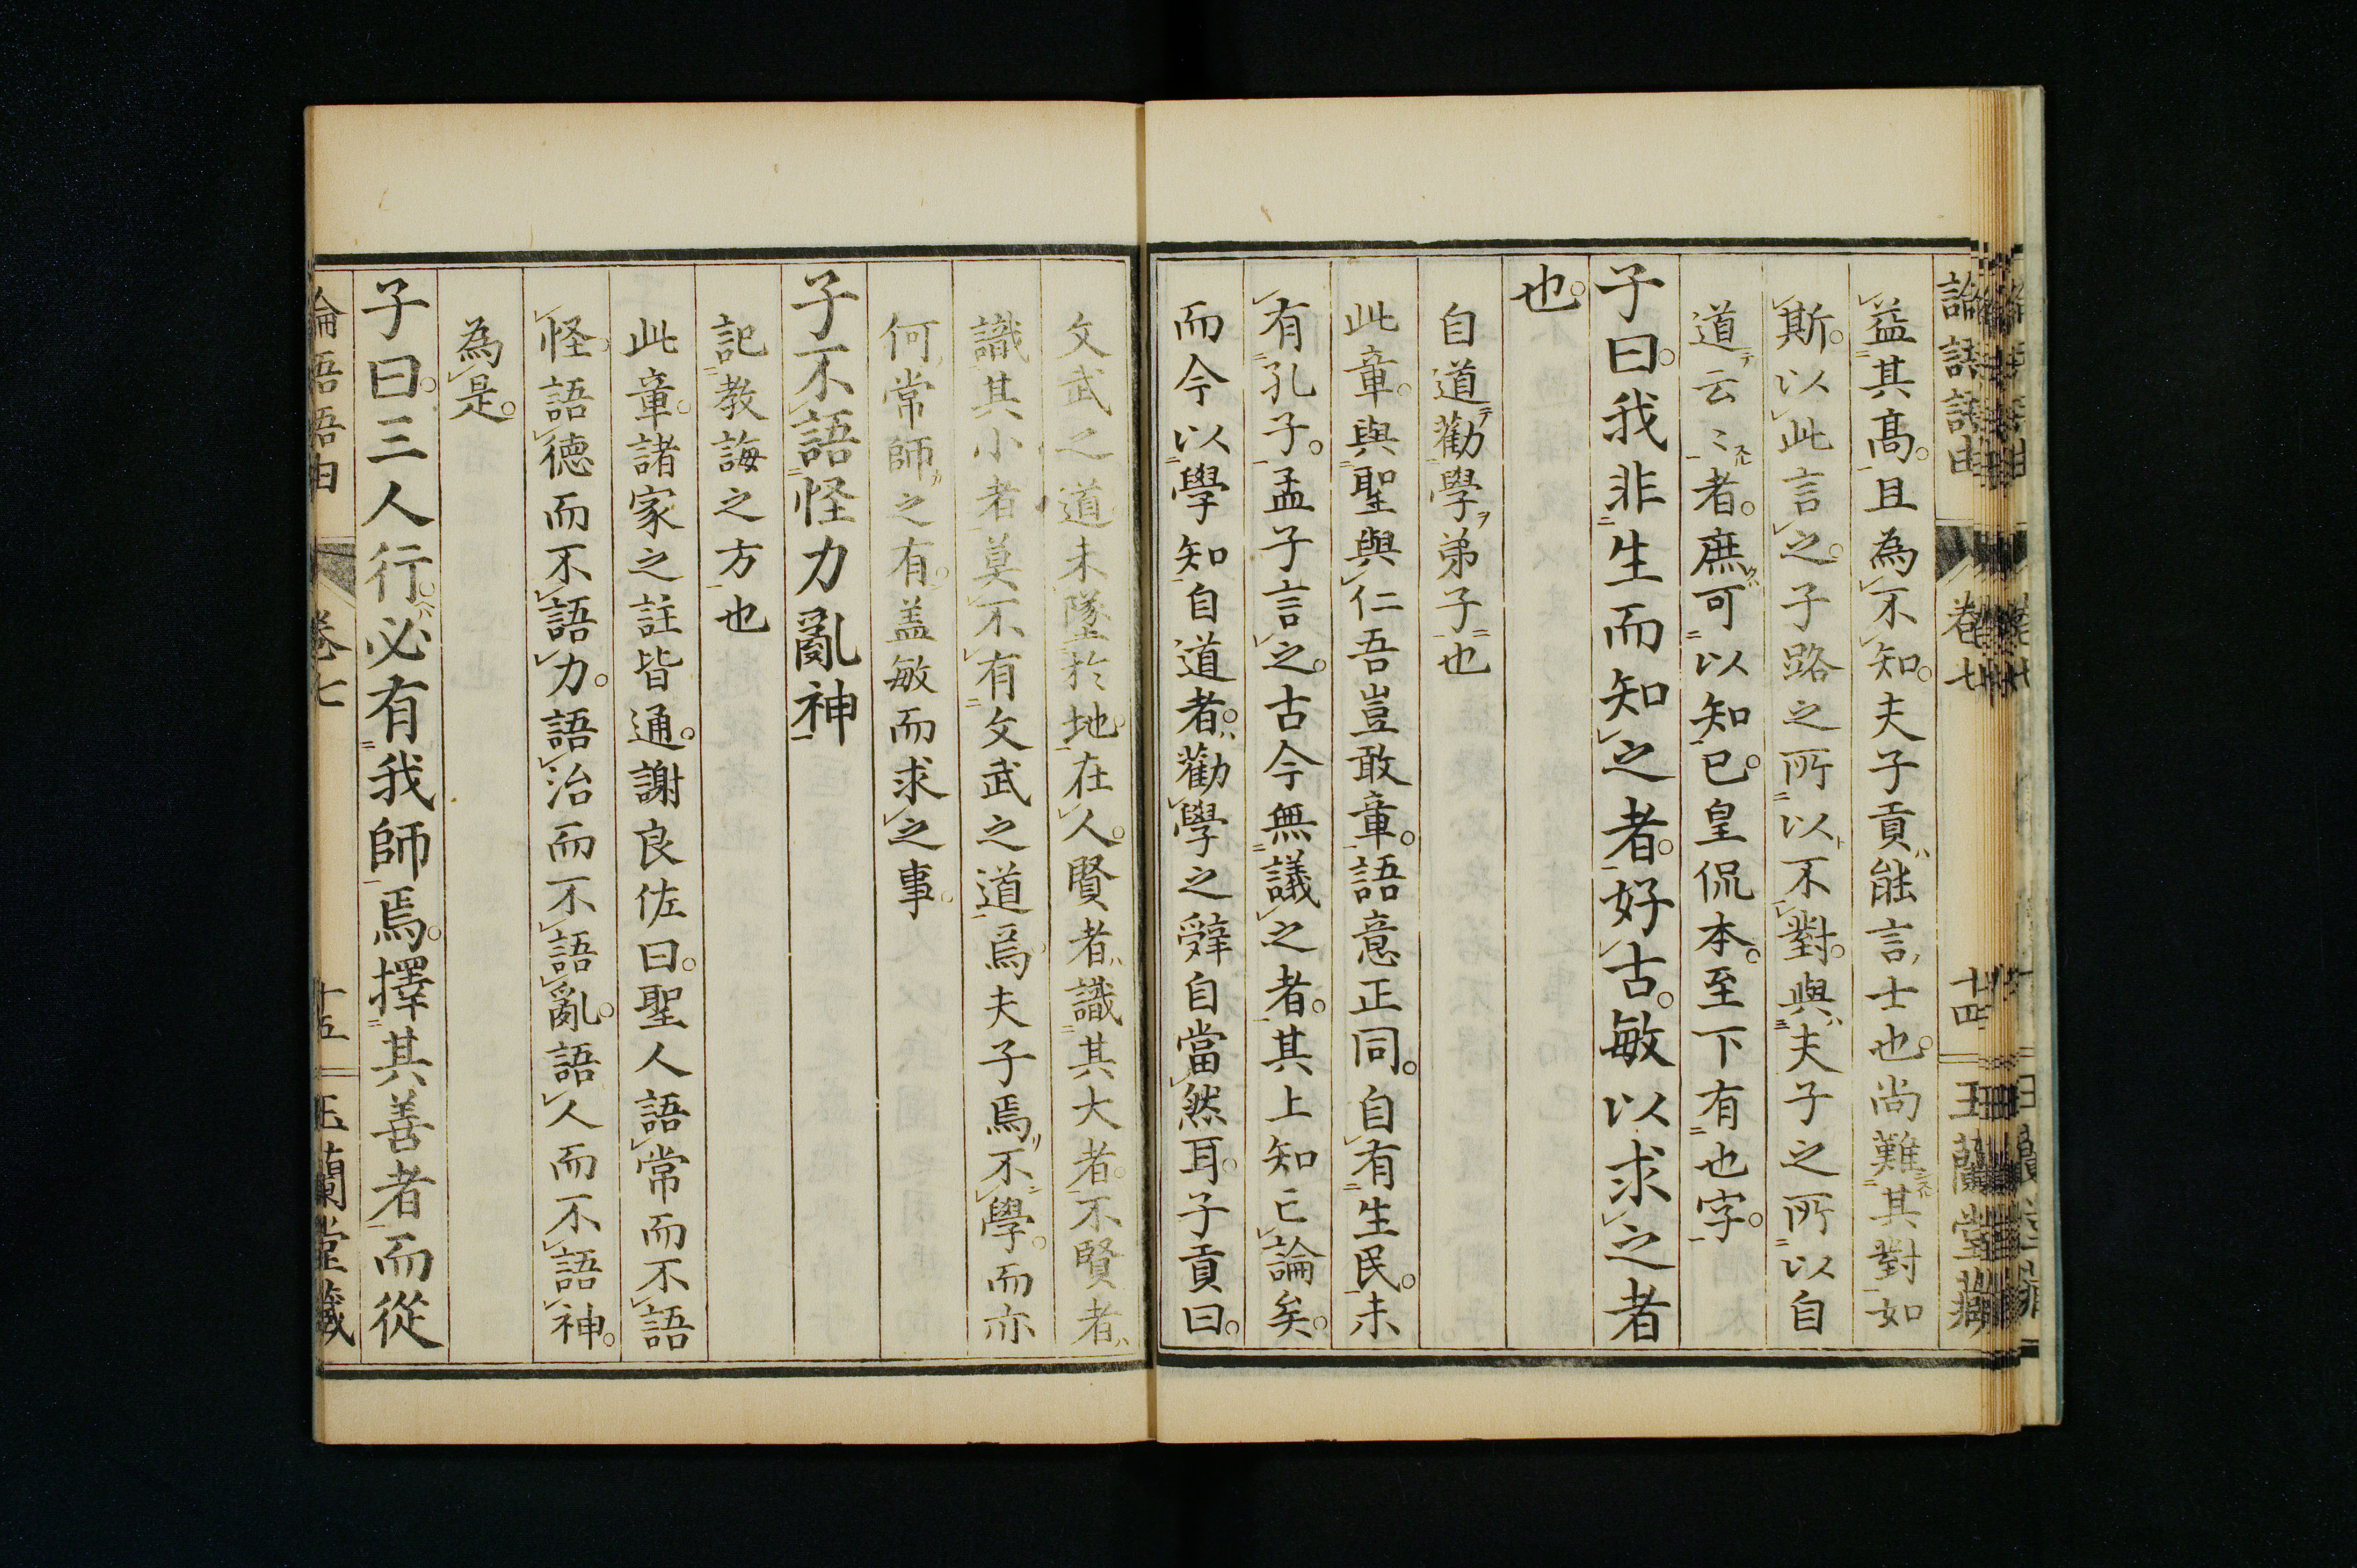 論語語由
卷七
十四
玉蘭堂藏
益其高。且為不知。夫子貢能言士也。尚難其對如
斯。以此言之。子路之所以不對。與夫子之所以自
道云〻者。庶可以知已。皇侃本。至下有也字。
子曰。我非生而知之者。好古。敏以求之者
也。
自道勸學弟子也
此章。與聖與仁吾豈敢章。語意正同。自有生民。未
有孔子。孟子言之。古今無議之者。其上知已論矣。
而今以學知自道者。勸學之辤自當然耳。子貢曰。
文武之道未墜於地。在人。賢者識其大者。不賢者
識其小者。莫不有文武之道焉。夫子焉不學。而亦
何常師之有。盖敏而求之事。
子不語怪力亂神
記教誨之方也
此章。諸家之註皆通。謝良佐曰。聖人語常而不語
怪。語德而不語力。語治而不語亂。語人而不語神。
為是。
子曰。三人行。必有我師焉。擇其善者而從
論語語由
卷七
十五
玉蘭堂藏